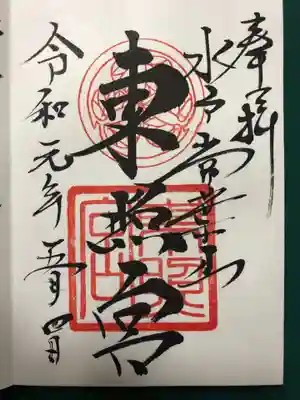 奉拝
水戸常葉山
東照宮
令和元年五月四日